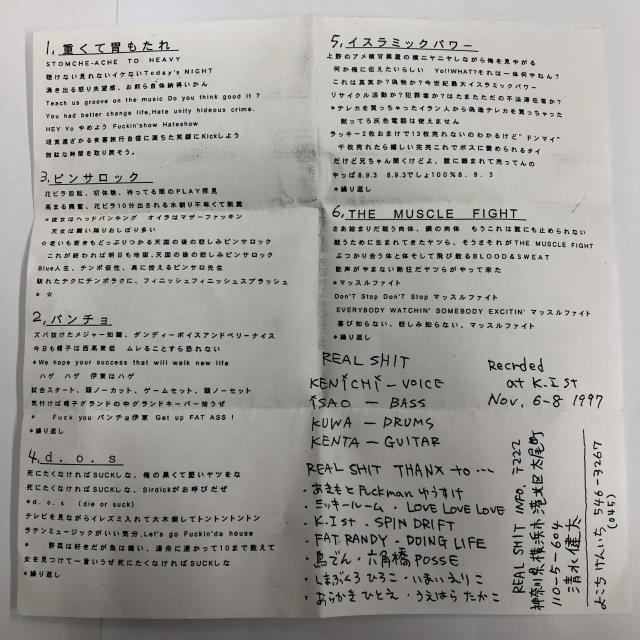 1, 重くて胃もたれ
STOMCHE-ACHE TO HEAVY
聴けない見れないイケないToday's NIGHT
湧き出る怒り失望感、お前ら自体納得いかん
Teach us groove on the music Do you think good it ?
You had better change life,Hate unity hideous crime.
HEY Yo やめよう Fuckin'show Hateshow
現実遠ざかる有害旅行自信に満ちた笑顔にKickしよう
無駄な時間を取り戻そう。
3, ピンサロック
花ビラ回転、初体験、待ってる間のPLAY拝見
高まる興奮、花ビラ10分出される水割り不味くて脱糞
*彼女はヘッドバンキング オイラはマザーファッキン
天女は舞い降りおしぼり多い
☆老いも若きもどっぷりつかる天国の後の悲しみピンサロック
これが終われば明日も地獄、天国の後の悲しみピンサロック
Blue人生、チンポ仮性、奥に控えるピンサロ先生
馴れたテクにチンポラクに、フィニッシュフィニッシュスプラッシュ
* ☆
2, パンチョ
ズバ抜けたメジャー知識、ダンディーボイスアンドベリーナイス
今日も帽子は西高東低 ムレることすら恐れない
*We hope your success that will walk new life
ハゲ ハゲ 伊東はハゲ
試合スタート、頭ノーカット、ゲームセット、頭ノーセット
気付けば帽子グランドの中グランドキーパー拾うぜ
* Fuck you パンチョ伊東 Get up FAT ASS !
*繰り返し
4. d. o. s
死にたくなければSUCKしな、俺の黒くて堅いヤツをな
死にたくなければSUCKしな、Sirdickがお呼びだぜ
*d. o. s (die or suck)
テレビを見ながらイレズミ入れて大木倒してトントントントン
ラテンミュージックがいい気分、Let's go Fuckin'da house
* 野菜は好きだが魚は嫌い、湯舟に浸かって10まで数えて
女を見つけて一言いうぜ死にたくなければSUCKしな
*繰り返し
5, イスラミックパワー
上野のアメ横甘栗屋の横ニヤニヤしながら俺を見やがる
何か俺に伝えたいらしい Yo!!WHAT?それは一体何やねん?
これは真実か?偽物か?今世紀最大イスラミックパワー
リサイクル活動か?犯罪者か?はたまたただの不法滞在者か?
*テレカを買っちゃったイラン人から偽造テレカを買っちゃった
黙ってろ灰色電話は使えません
ラッキー2枚おまけで13枚売れないのわかるけど"ドンマイ"
千枚売れたら嬉しい完売これでボスに褒められるタイ
だけど兄ちゃん聞くけどよ、誰に頼まれて売ってんの
やっぱ8.9.3 8.9.3でしょ100% 8. 9. 3
*繰り返し
6, THE MUSCLE FIGHT
さあ始まりだ戦う肉体、鋼の肉体 もうこれは誰にも止められない
戦うために生まれてきたヤツら、そうさそれがTHE MUSCLE FIGHT
ぶつかり合う体と体そして飛び散るBLOOD&SWEAT
歓声がやまない熱狂だヤツらがやって来た
*マッスルファイト
Don'T Stop Don'T Stop マッスルファイト
EVERYBODY WATCHIN' SOMEBODY EXCITIN' マッスルファイト
喜び知らない、悲しみ知らない、マッスルファイト
*繰り返し
REAL SHIT
KENiCHi – VOICE
iSAO – BASS
KUWA – DRUMS
KENTA – GUITAR
Recrded
at K.I st
Nov. 6-8 1997
REAL SHIT THANX to ...
・あきもとFuckman ゆうすけ
・ミッキールーム・LOVE LOVE LOVE
・K.I st・SPIN DRIFT
・FAT RANDY・DOING LIFE
・鳥でん・六角橋POSSE
・しまぶくろ ひろこ・いまい えりこ
・あらかき ひとえ・うえはら たかこ
REAL SHIT INFO. 〒222
神奈川県横浜市港北区大尾町
110-5-604
清水健太
よこち けんいち 546-3267
(045)